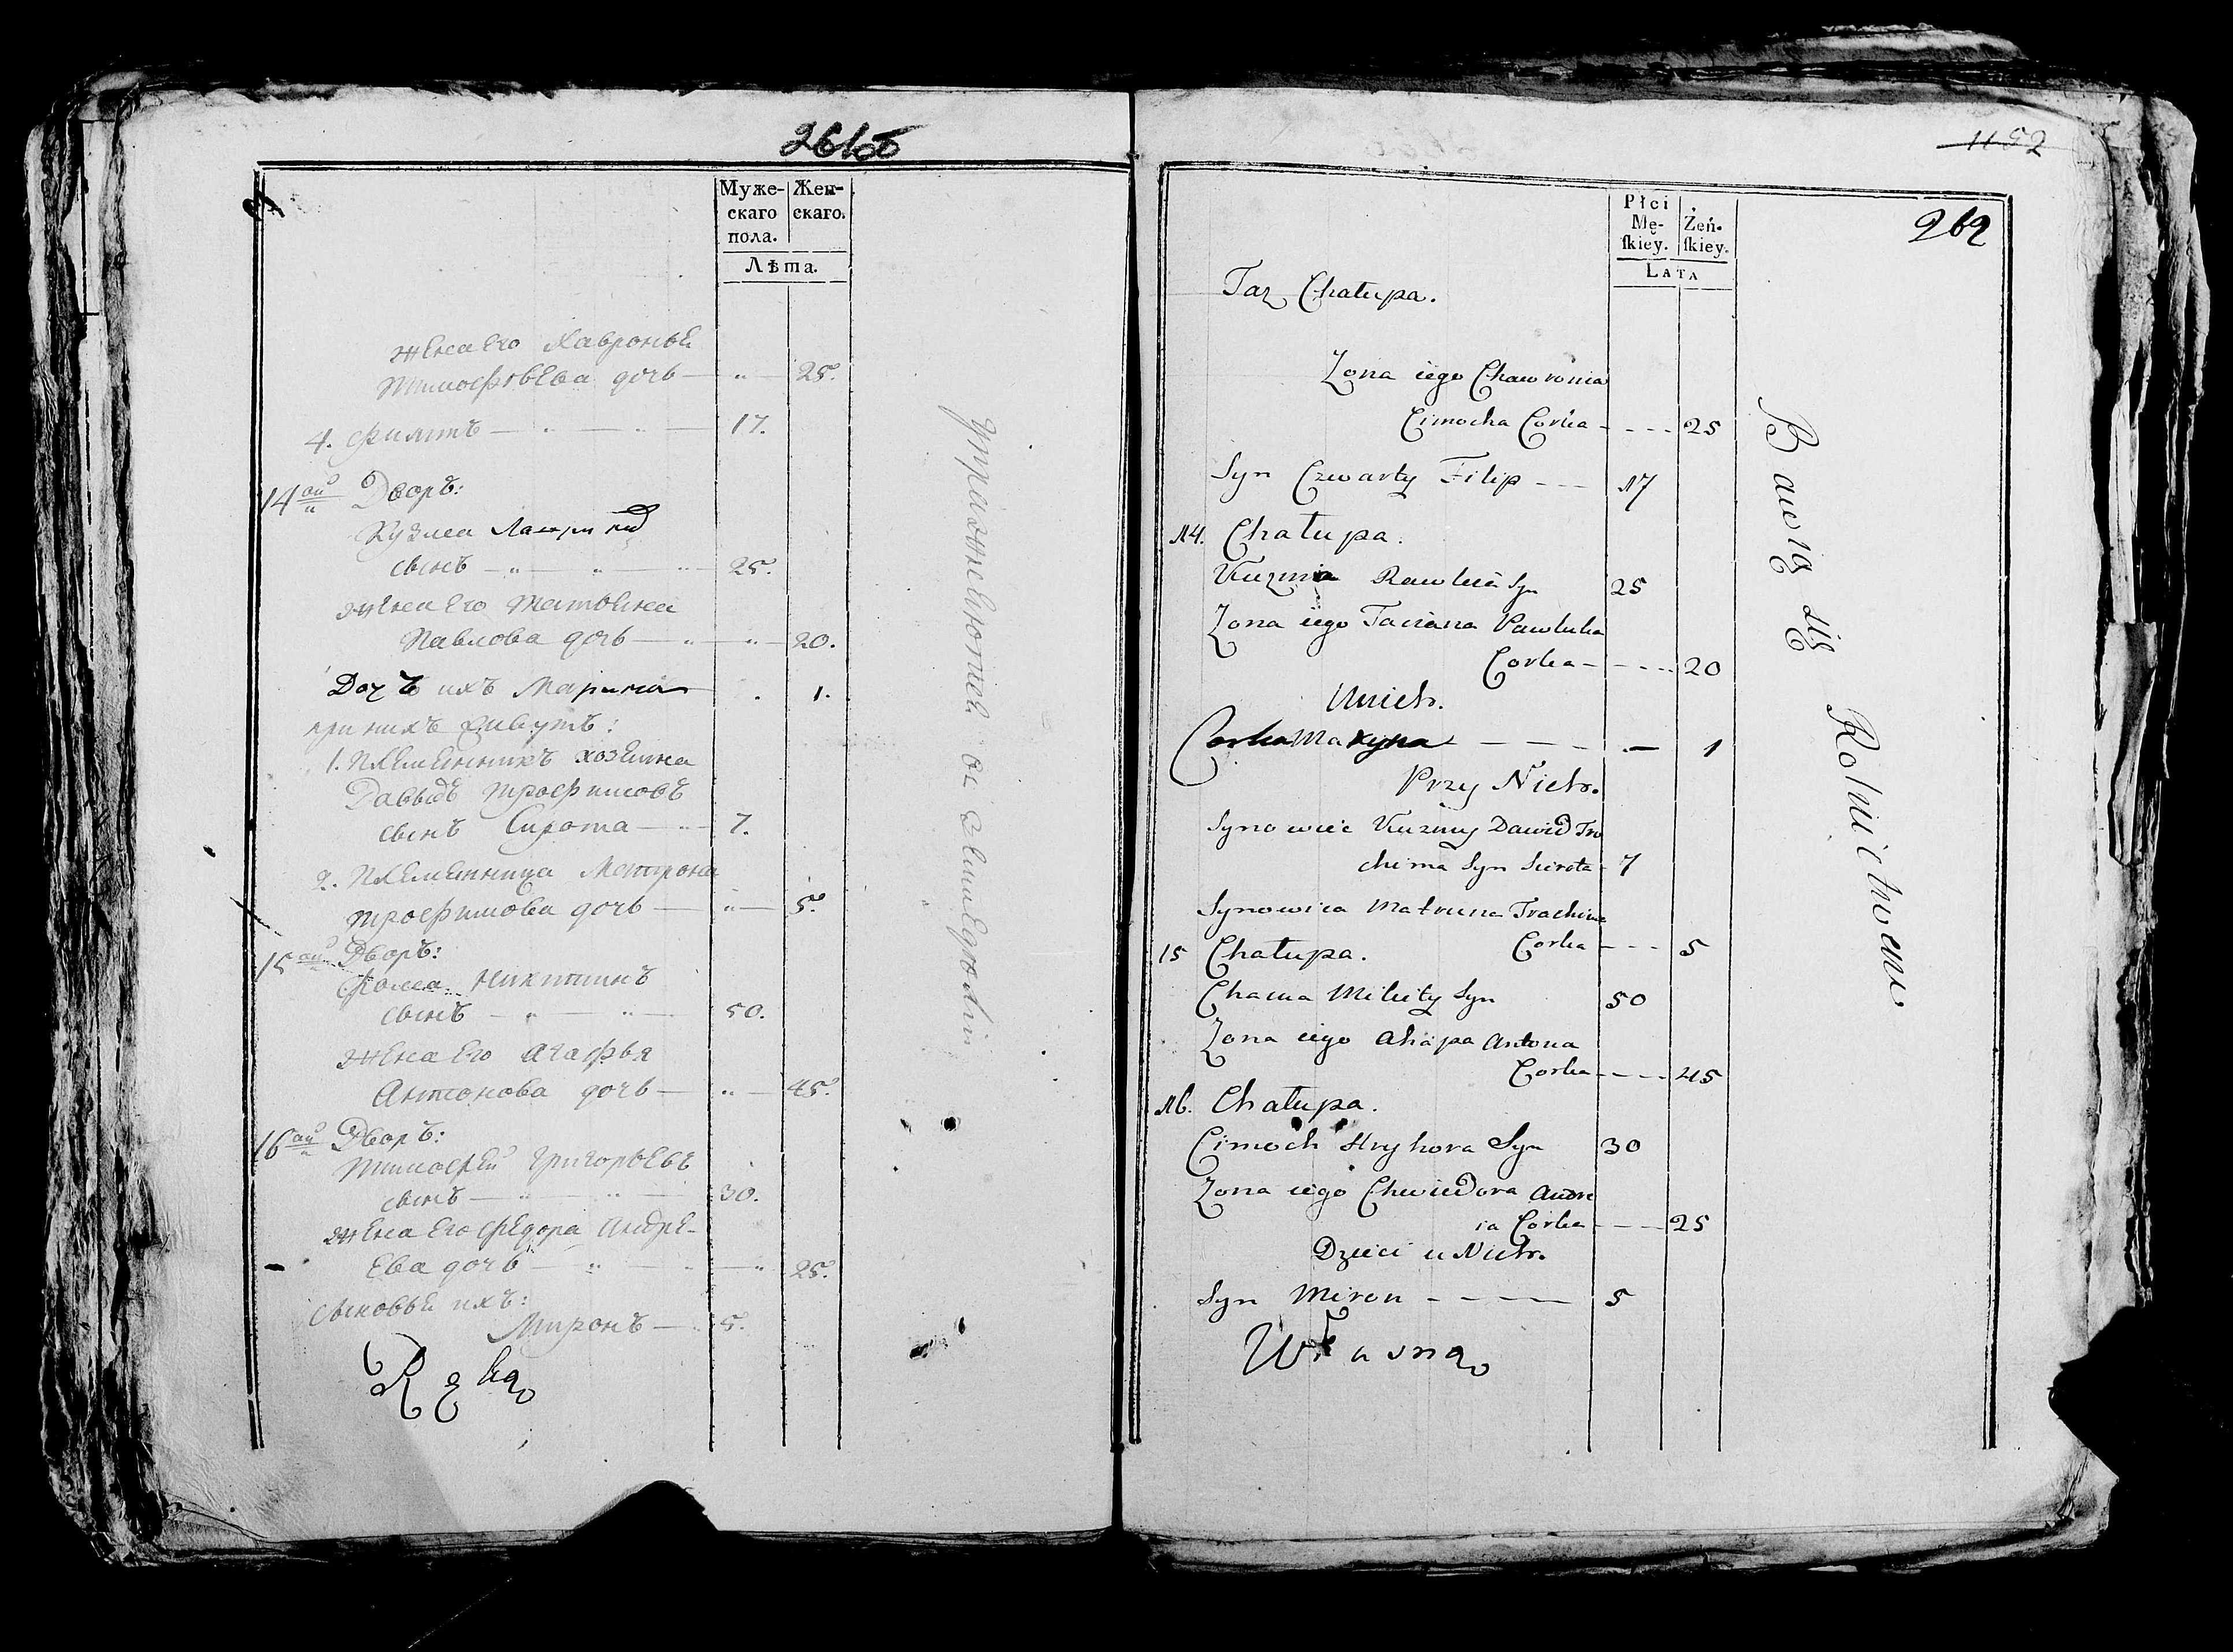 261об
Муже-
скаго
пола.
Жен-
скаго.
Лѣта.
жена его Хавронья
Тимофѣева дочь — „ — 25.
4. Филипъ — „ — „ — 17.
14ый Дворъ:
Кузма
сынъ — „ — „ — 25.
жена его Татьяна
Павлова дочь — „ — 20.
Дочь ихъ Марина . 1.
при нихъ живутъ:
1. племянникъ хозяина
Давыдъ Трофимовъ
сынъ Сирота — „ — 7.
2. племянница Матрона
Трофимова дочь — „ — 5.
15ый Дворъ:
Фома Никитинъ
сынъ — „ — „ — 50.
жена его Агафья
Антонова дочь — „ — 45.
16ый Дворъ:
Тимофей Григорьевъ
сынъ — „ — „ — 30.
жена его Федора Андре-
ева дочь — „ — „ 25.
сыновья ихъ:
Миронъ — 5.
Ręką
упражняются въ земледѣліи
1152
262
Płci
Mę-
ſkiey.
Żeń-
ſkiey.
LATA
Taz Chałupa.
Zona iego Chawronia
Cimocha Corka - - - - 25
Syn Czwarty Filip - - - 17
14. Chałupa.
Kuzma Syn 25
Zona iego Taciana Pawluka
Corka - - - - 20
U nich.
Corka Maryna - - - - 1
Przy Nich.
Synowiec Kuzmy Dawid Tro
chima Syn Sierota - 7
Synowica Matruna Trochima
Corka - - - 5
15 Chałupa.
Choma Mikity Syn 50
Zona iego Ahapa Antona
Corka - - - - 45
16. Chałupa.
Cimoch Hryhora Syn 30
Zona iego Chwiedora Andre
ia Corka - - - 25
Dzieci u Nich.
Syn Miron - - - - 5
Własną
Bawią się Rolnictwem